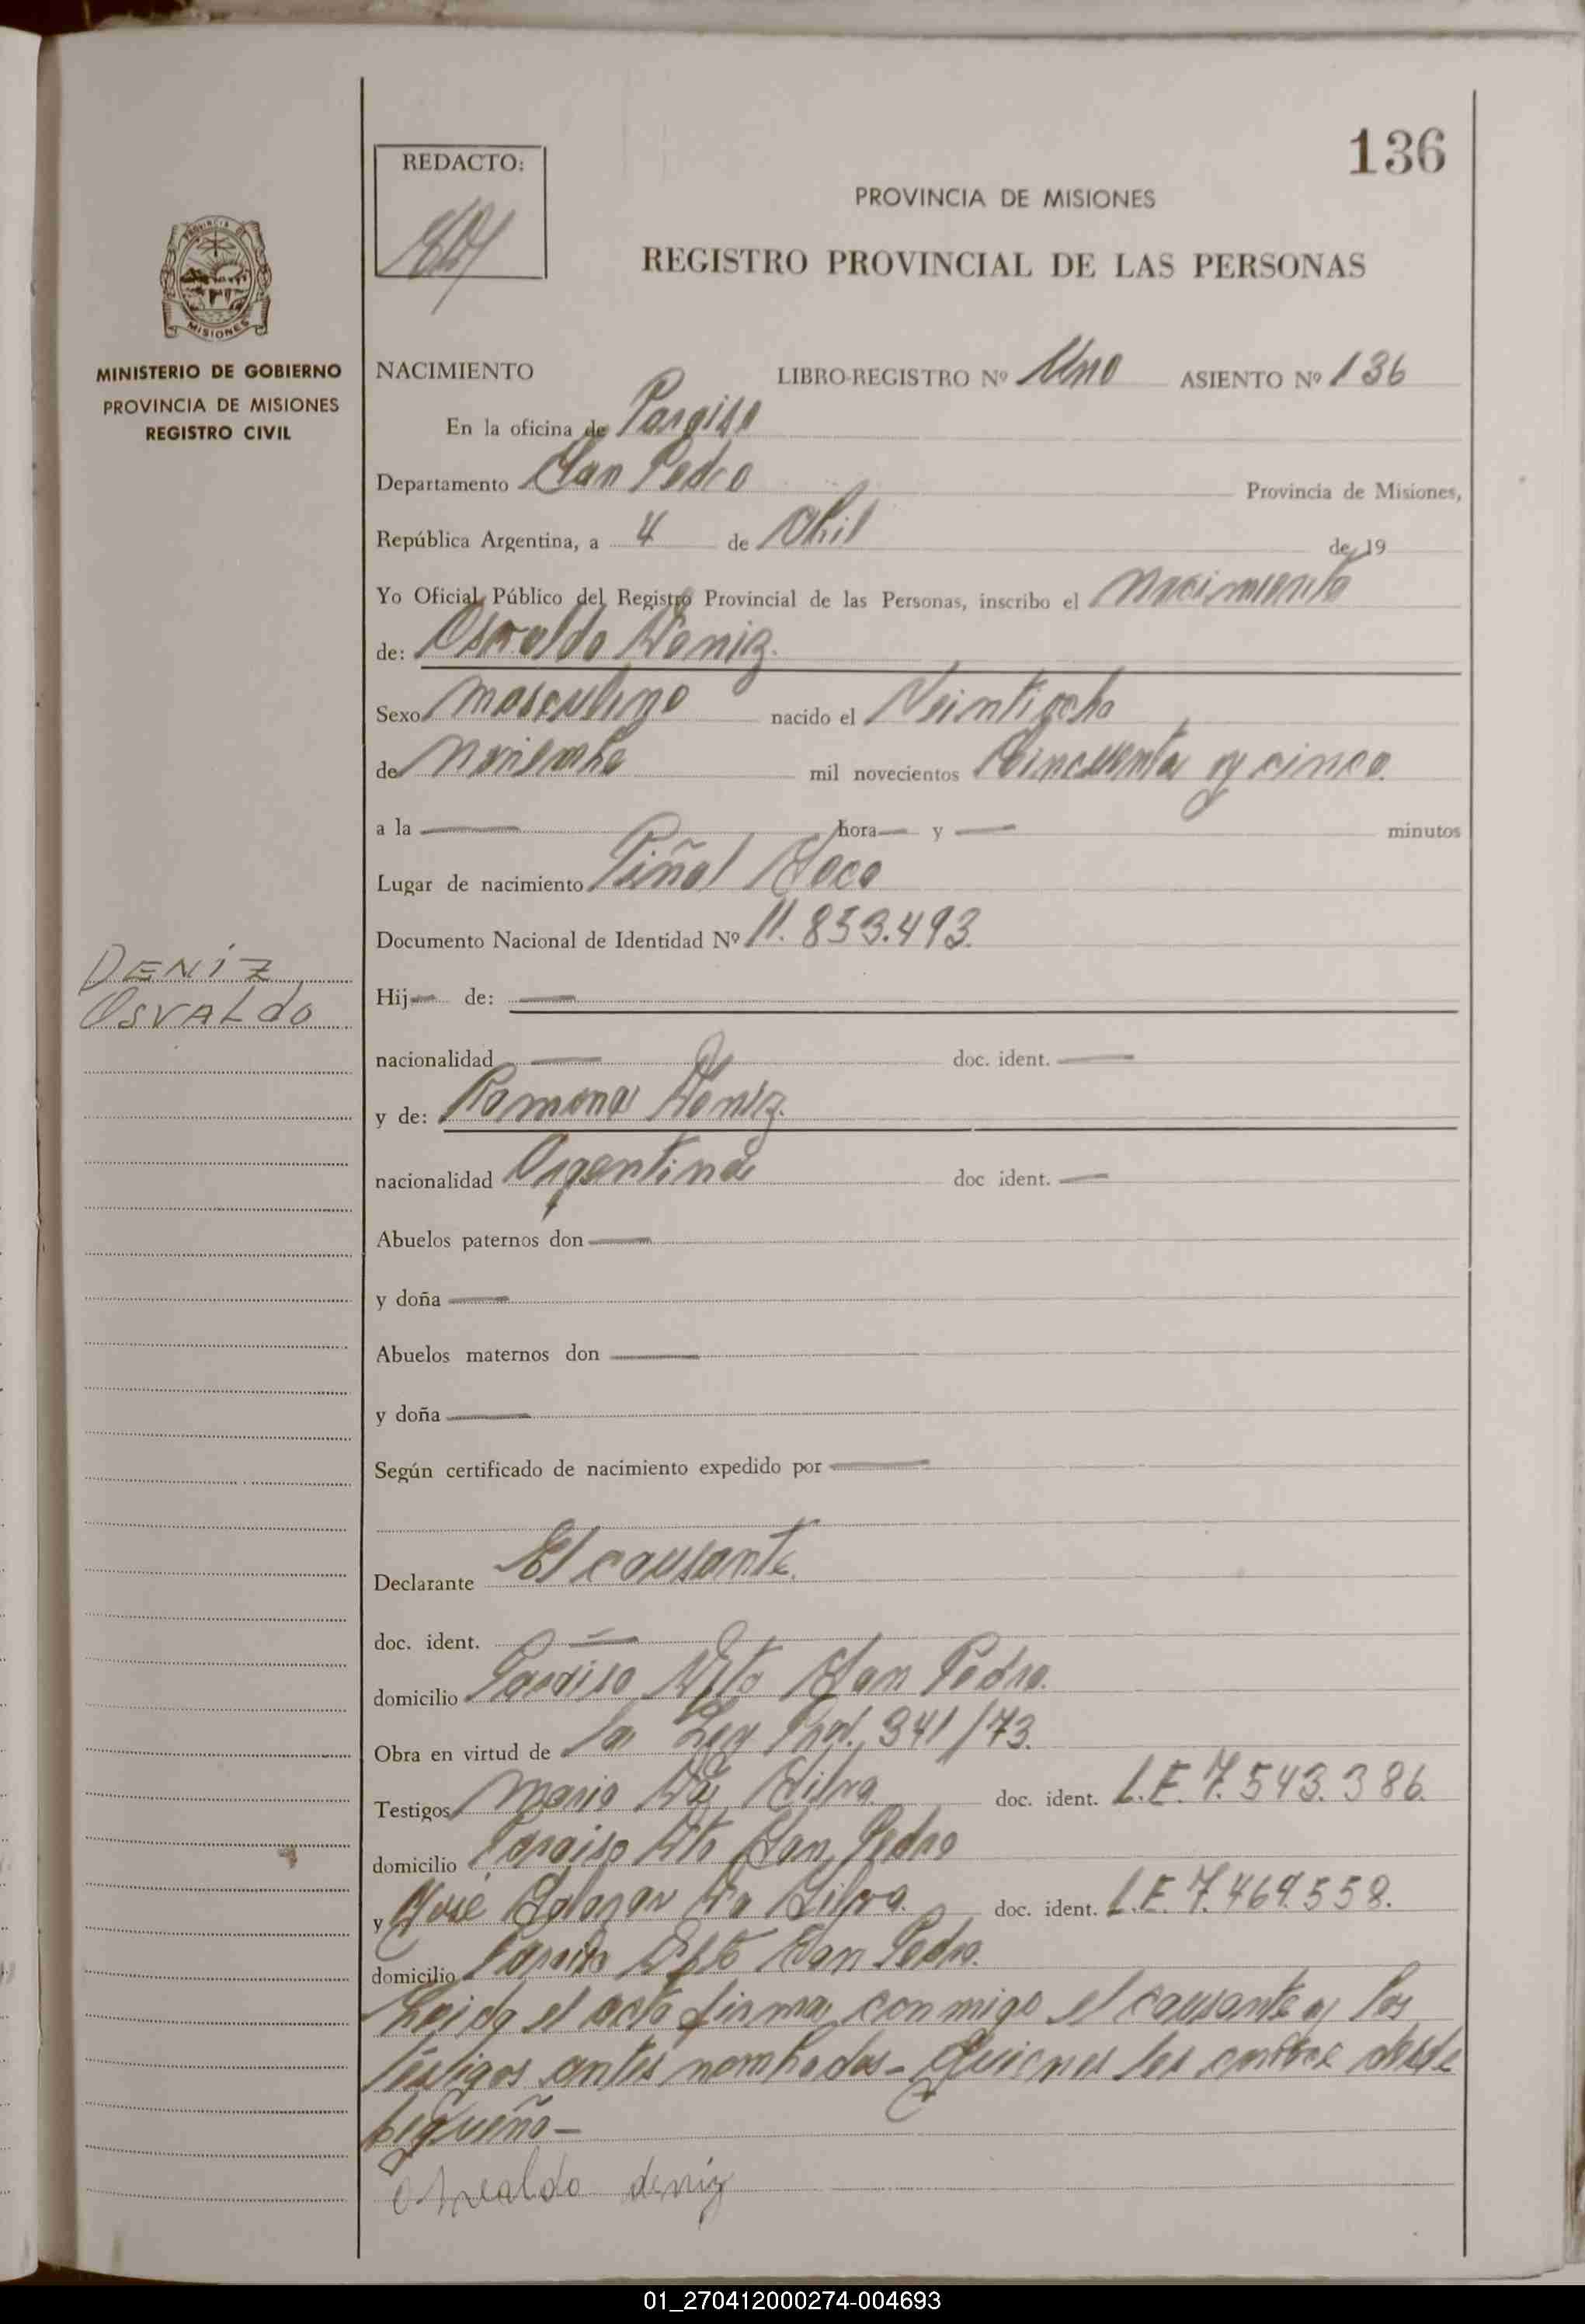 136
REDACTO:
PROVINCIA DE MISIONES
REGISTRO PROVINCIAL DE LAS PERSONAS
PROVINCIA DE
MISIONES
MINISTERIO DE GOBIERNO
PROVINCIA DE MISIONES
REGISTRO CIVIL
NACIMIENTO LIBRO-REGISTRO Nº Uno ASIENTO Nº 136
En la oficina de Paraiso
Departamento San Pedro Provincia de Misiones,
República Argentina, a 4 de Abril de 19
Yo Oficial Público del Registro Provincial de las Personas, inscribo el Nacimiento
de: Osvaldo Deniz.
Sexo masculino nacido el Veintiocho
de Noviembre mil novecientos Cincuenta y cinco.
a la — hora — y — minutos
Lugar de nacimiento Piñal Seco
Documento Nacional de Identidad Nº 11.853.493.
DENIZ
OSVALDO
Hij — de: —
nacionalidad — doc. ident. —
y de: Ramona Deniz.
nacionalidad Argentina doc ident. —
Abuelos paternos don —
y doña —
Abuelos maternos don —
y doña —
Según certificado de nacimiento expedido por —
Declarante El causante.
doc. ident. —
domicilio Paraiso Dto San Pedro.
Obra en virtud de la Ley Prov. 341/73.
Testigos Mario Da Silva. doc. ident. L.E. 7.543.386.
domicilio Paraiso Dto San Pedro
y José Da Silva. doc. ident. L.E. 7.469.558.
domicilio Paraiso Dto San Pedro.
Leida el acta firma conmigo el causante y los
testigos antes nombrados - Quienes los conoce desde
pequeño -
osvaldo deniz
01_270412000274-004693